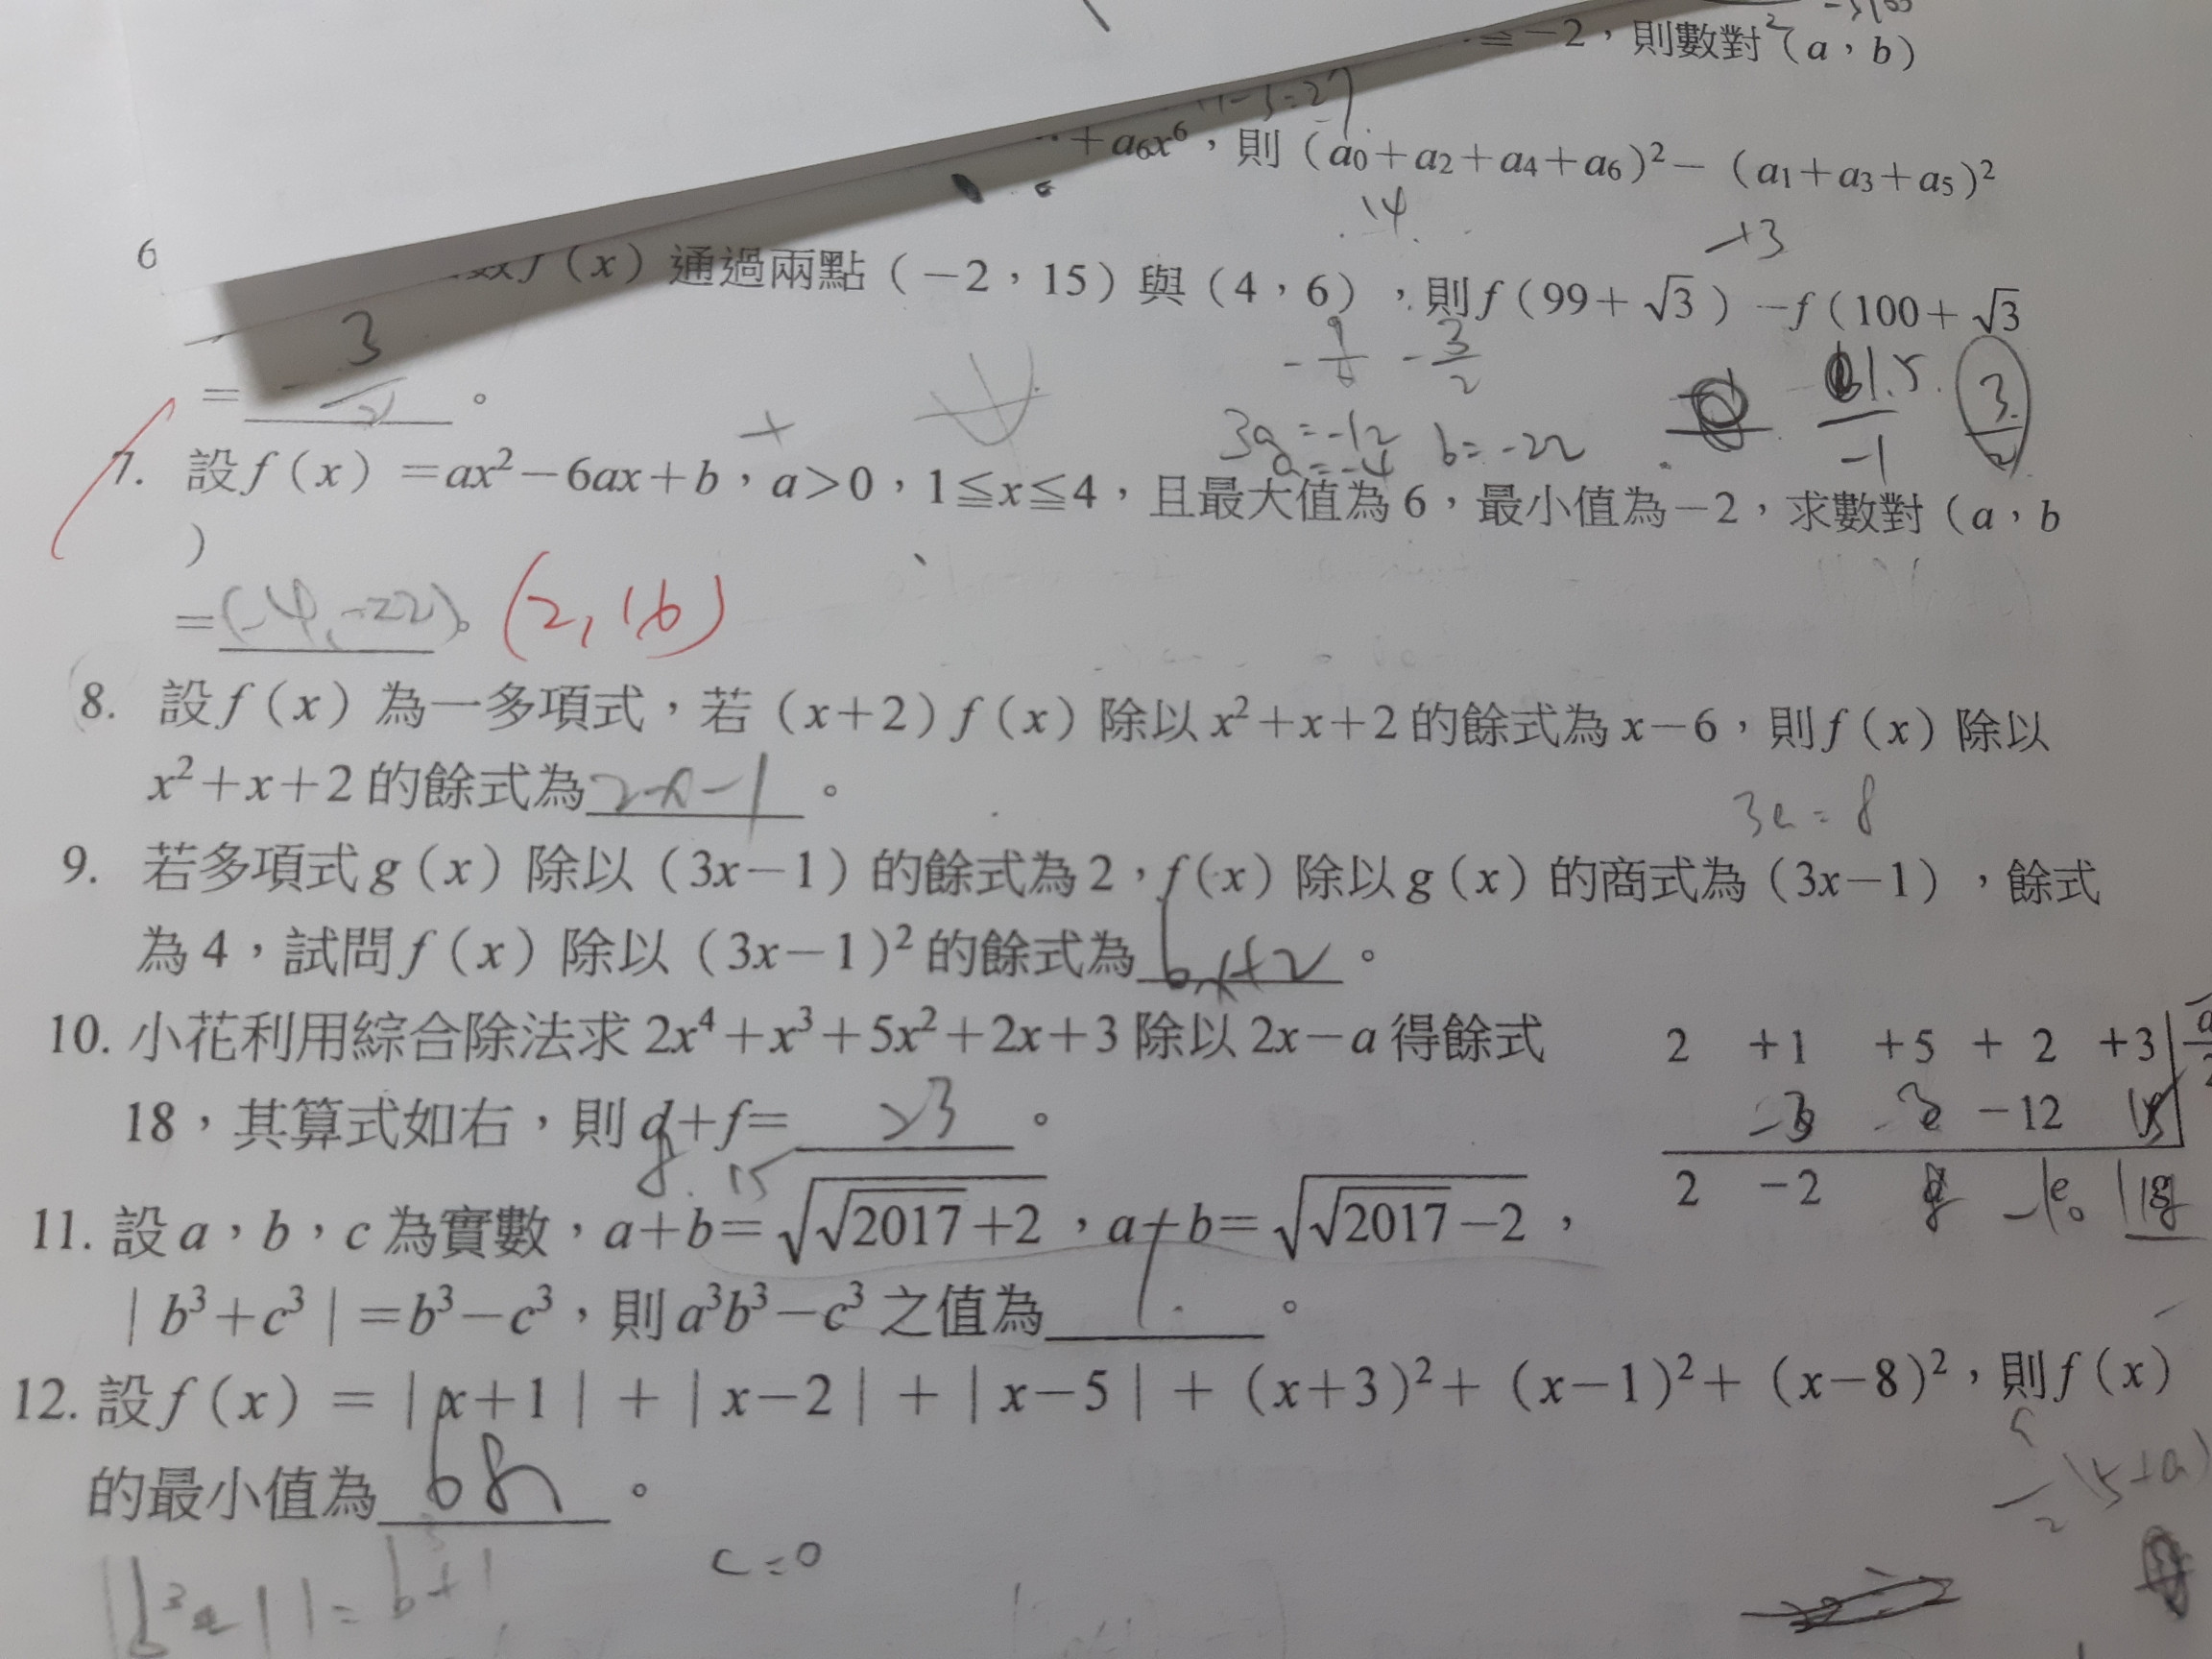 ≦−2，則數對(a，b)
…+a₆x⁶，則(a₀+a₂+a₄+a₆)²−(a₁+a₃+a₅)²
14
6 數f(x)通過兩點(−2，15)與(4，6)，則f(99+√3)−f(100+√3
= −3/2 。
−9/6 −3/2
1.5/−1 3/2
3a=−12 b=−22
a=−4
7. 設f(x)=ax²−6ax+b，a>0，1≦x≦4，且最大值為6，最小值為−2，求數對(a，b
)
=(−4,−22)。 (2,16)
8. 設f(x)為一多項式，若(x+2)f(x)除以x²+x+2的餘式為x−6，則f(x)除以
x²+x+2的餘式為2x−1。
9. 若多項式g(x)除以(3x−1)的餘式為2，f(x)除以g(x)的商式為(3x−1)，餘式
為4，試問f(x)除以(3x−1)²的餘式為6x+2。
10. 小花利用綜合除法求2x⁴+x³+5x²+2x+3除以2x−a得餘式
18，其算式如右，則d+f=23。
8 15
2 +1 +5 + 2 +3
−3 −12 15
2 −2 d e
11. 設a，b，c為實數，a+b=√(√2017+2)，a+b=√(√2017−2)，
|b³+c³|=b³−c³，則a³b³−c³之值為1。
12. 設f(x)=|x+1|+|x−2|+|x−5|+(x+3)²+(x−1)²+(x−8)²，則f(x)
的最小值為68。
c=0